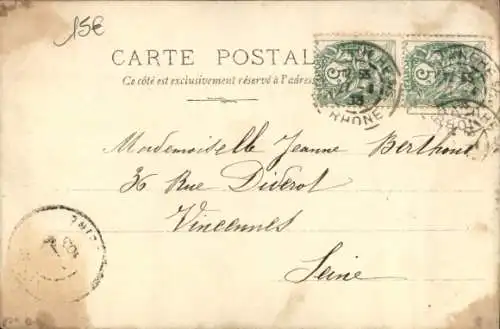 15€
CARTE POSTALE
Ce côté est exclusivement réservé à l'adresse
RHONE
Mademoiselle Jeanne Berthoux
36 Rue Diderot
Vincennes
Seine